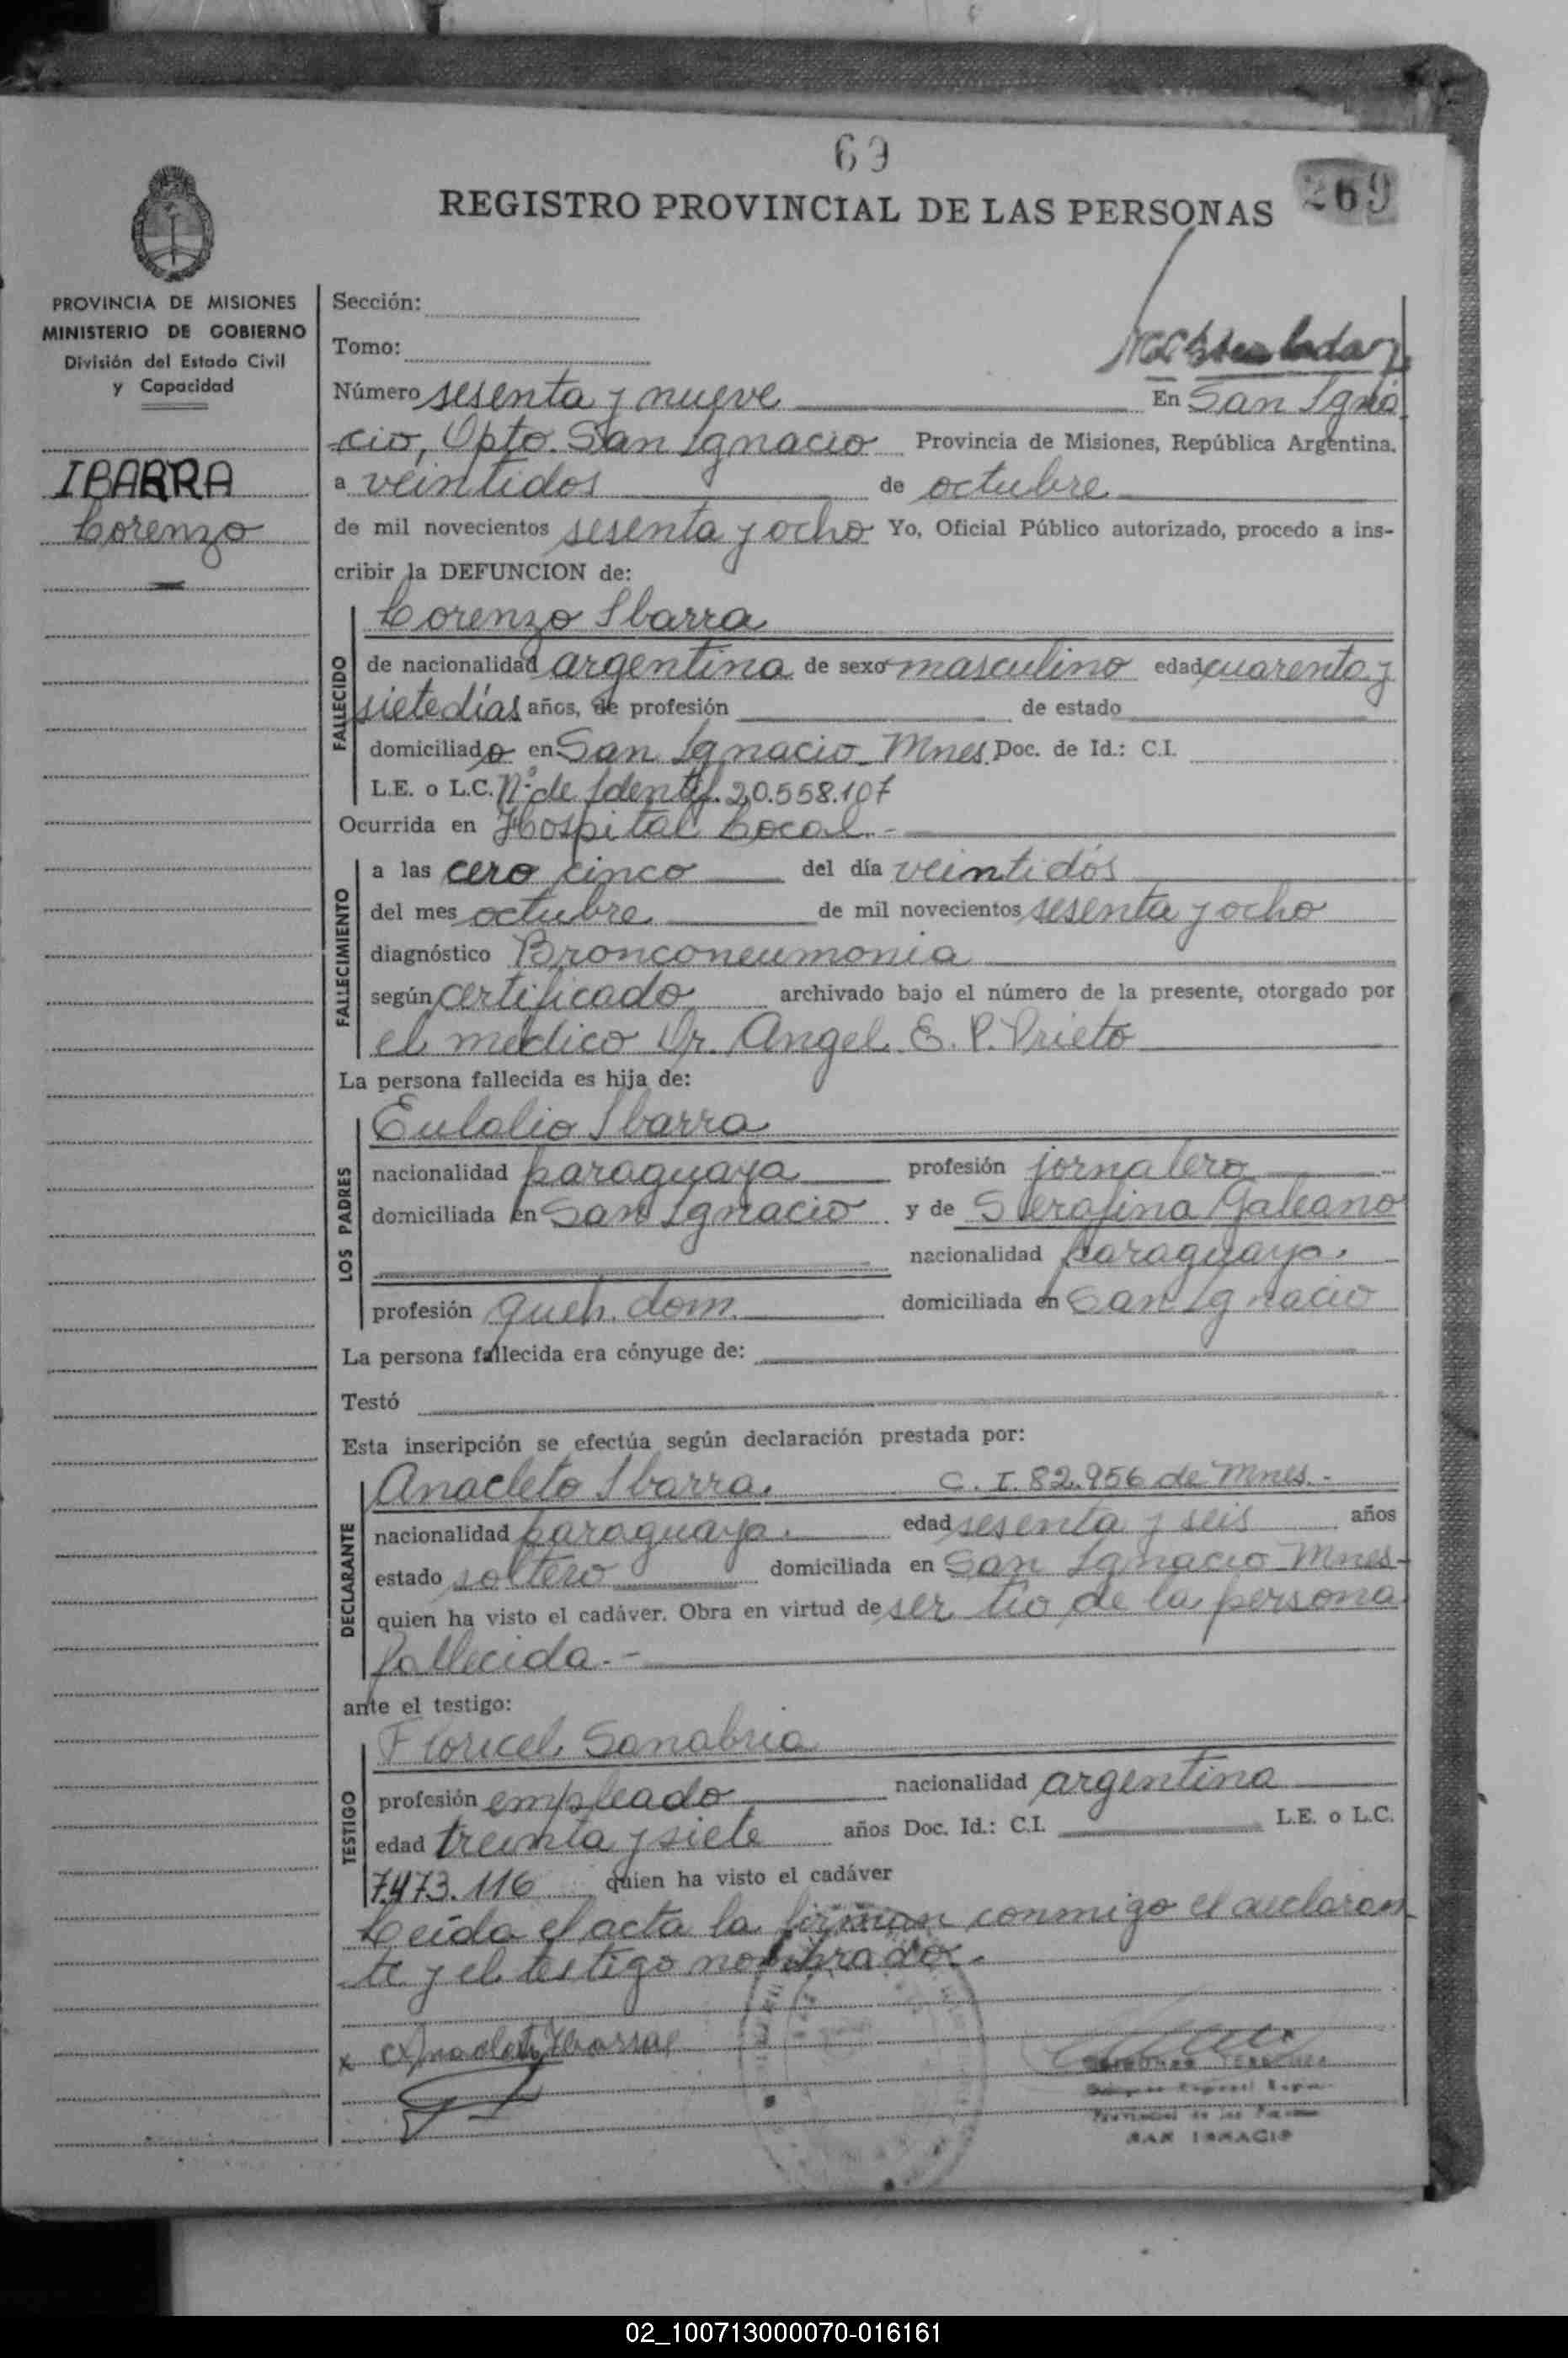 69
REGISTRO PROVINCIAL DE LAS PERSONAS
269
PROVINCIA DE MISIONES
MINISTERIO DE GOBIERNO
División del Estado Civil
y Capacidad
IBARRA
Lorenzo
Sección:
Tomo:
Número sesenta y nueve En San Igna
cio, Dpto. San Ignacio Provincia de Misiones, República Argentina.
a veintidos de octubre
de mil novecientos sesenta y ocho Yo, Oficial Público autorizado, procedo a ins-
cribir la DEFUNCION de:
FALLECIDO
Lorenzo Ibarra
de nacionalidad argentina de sexo masculino edad cuarenta y
siete días años, de profesión de estado
domiciliado en San Ignacio Mnes. Doc. de Id.: C.I.
L.E. o L.C. Nº de Identif. 20.558.107
Ocurrida en Hospital Local.-
FALLECIMIENTO
a las cero cinco del día veintidós
del mes octubre de mil novecientos sesenta y ocho
diagnóstico Bronconeumonia
según certificado archivado bajo el número de la presente, otorgado por
el médico Dr. Angel E. P. Prieto
La persona fallecida es hija de:
LOS PADRES
Eulalio Ibarra
nacionalidad paraguaya profesión jornalero
domiciliada en San Ignacio y de Serafina Galeano
nacionalidad paraguaya.
profesión queh. dom. domiciliada en San Ignacio
La persona fallecida era cónyuge de:
Testó
Esta inscripción se efectúa según declaración prestada por:
DECLARANTE
Anacleto Ibarra. C. I. 82.956 de Mnes.-
nacionalidad paraguaya. edad sesenta y seis años
estado soltero domiciliada en San Ignacio Mnes-
quien ha visto el cadáver. Obra en virtud de ser tío de la persona
fallecida.-
ante el testigo:
TESTIGO
Floricel Sanabria
profesión empleado nacionalidad argentina
edad treinta y siete años Doc. Id.: C.I. L.E. o L.C.
7.473.116 quien ha visto el cadáver
Leída el acta la firman conmigo el declaran
te y el testigo nombrado.-
x Anacleto Ibarra
SAN IGNACIO
02_100713000070-016161